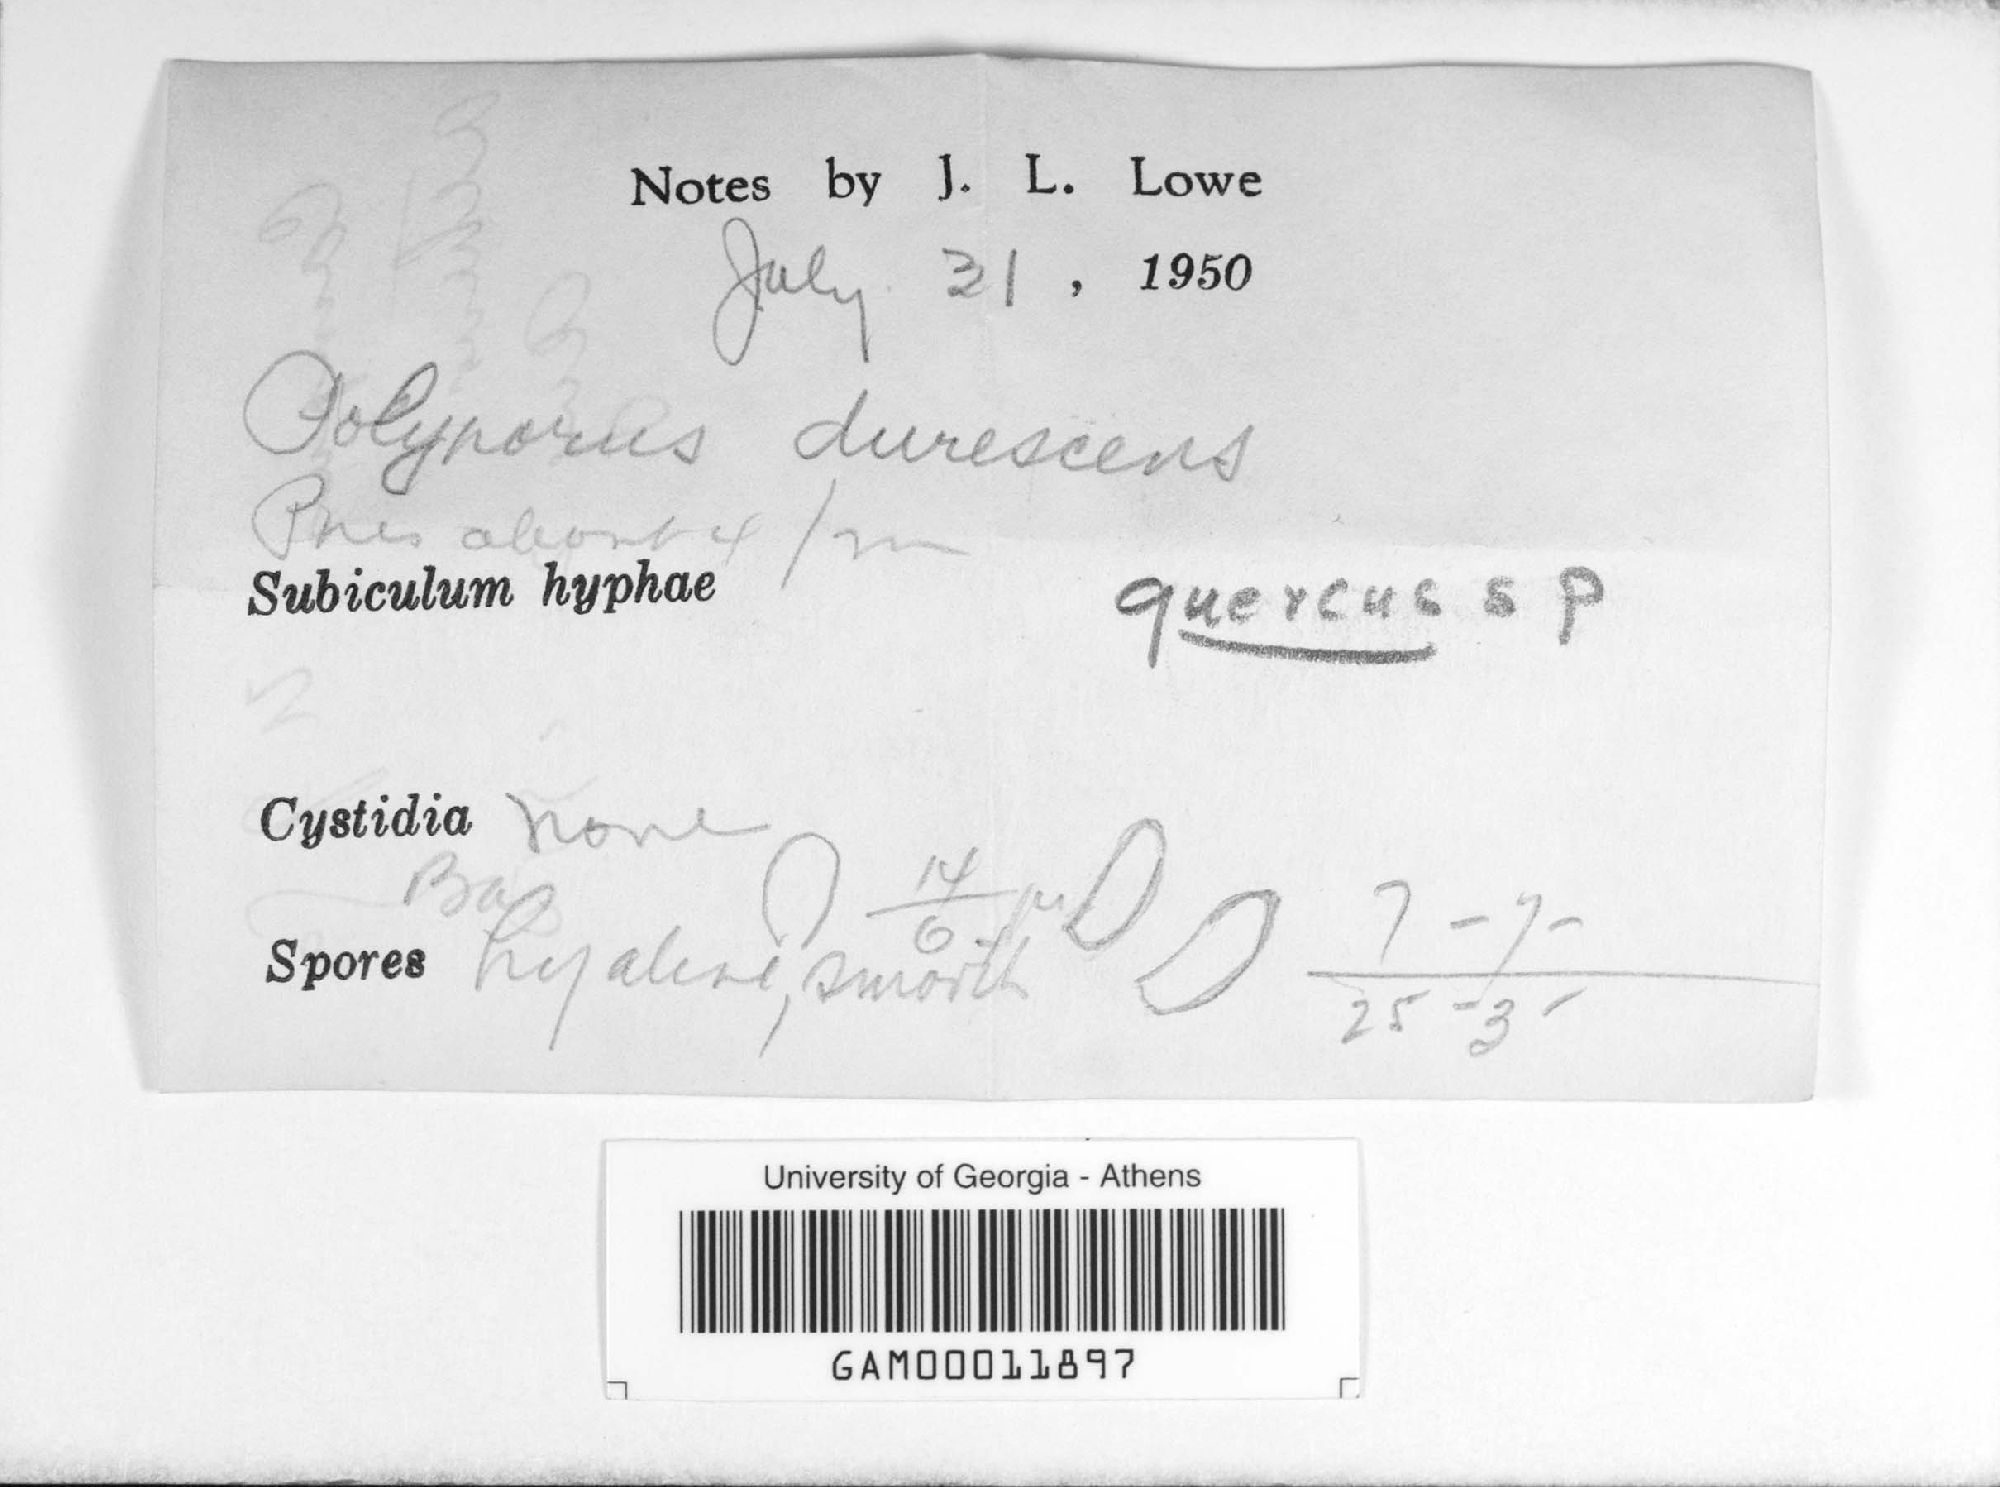 Notes by J. L. Lowe
July 31, 1950
Polyporus durescens
Pores about 4 / m
Subiculum hyphae
quercus sp
Cystidia none
Bas 14/6 µ
Spores hyaline, smooth
University of Georgia - Athens
GAM00011897